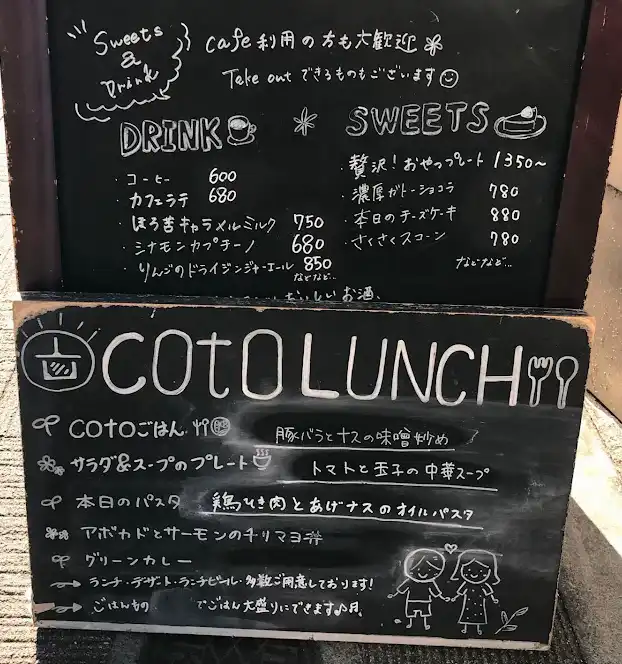 Sweets
&
Drink
cafe利用の方も大歓迎
Take outできるものもございます
DRINK
・コーヒー 600
・カフェラテ 680
ほろ苦キャラメルミルク 750
・シナモンカプチーノ 680
・りんごのドライジンジャーエール 850
などなど…
SWEETS
・贅沢!おやつプレート 1350~
・濃厚ガトーショコラ 780
・本日のチーズケーキ 880
・さくさくスコーン 780
などなど…
おいしいお酒、
COTO LUNCH
COTOごはん
豚バラとナスの味噌炒め
サラダ&スープのプレート
トマトと玉子の中華スープ
本日のパスタ 鶏ひき肉とあげナスのオイルパスタ
アボカドとサーモンのチリマヨ丼
グリーンカレー
ランチ・デザート・ランチビール・多数ご用意しております!
ごはんもの でごはん大盛りにできます♪